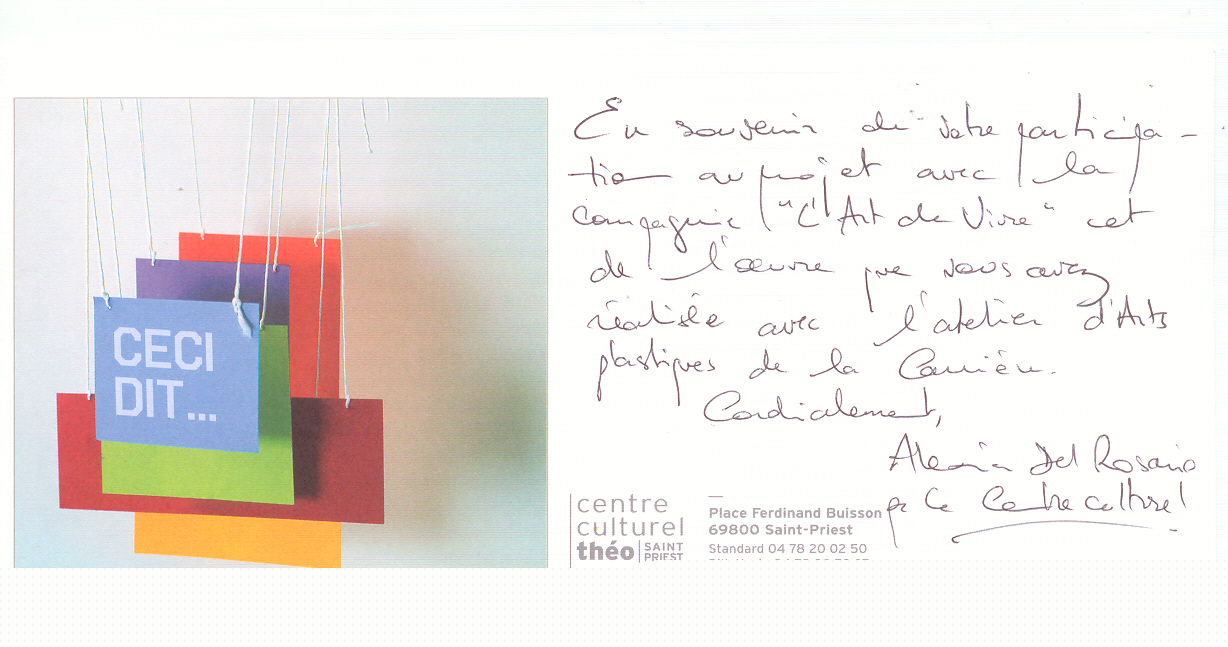 CECI
DIT...
En souvenir de votre participa-
tion au projet avec la
compagnie "L'Art de Vivre" et
de l'œuvre que vous avez
réalisée avec l'atelier d'Arts
plastiques de la Carrière.
Cordialement,
Del Rosario
Centre culturel
centre
culturel
théo SAINT
PRIEST
Place Ferdinand Buisson
69800 Saint-Priest
Standard 04 78 20 02 50